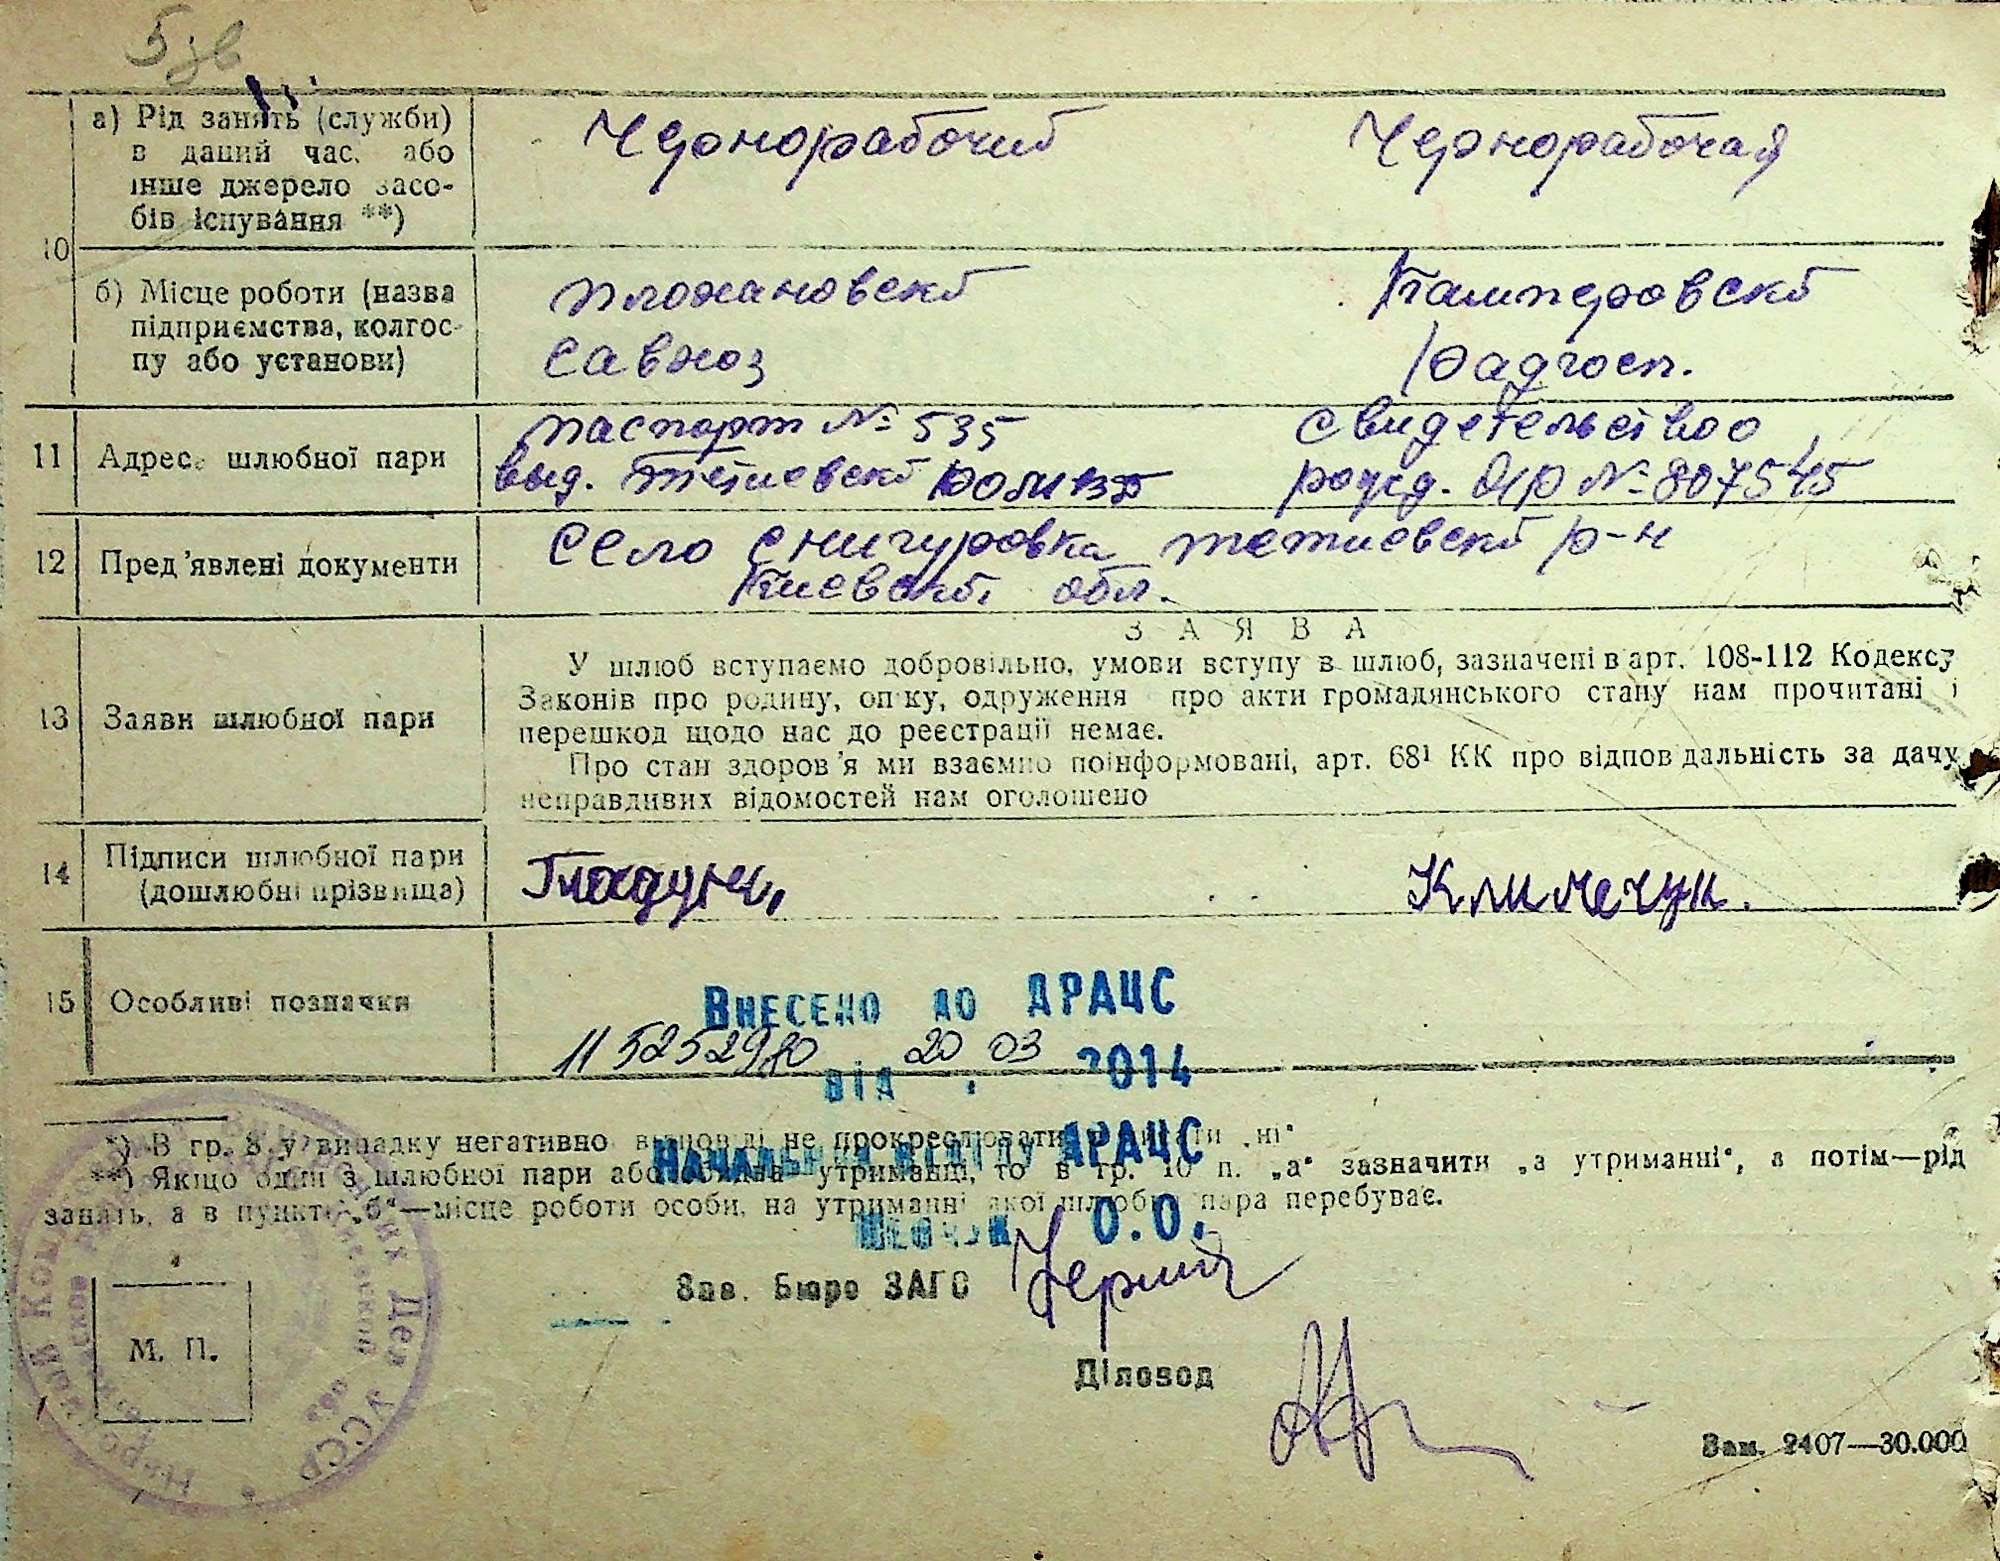 5 зв
10
а) Рід занять (служби) в даний час, або інше джерело засобів існування **)
Чернорабочий
Чернорабочая
б) Місце роботи (назва підприємства, колгоспу або установи)
Плохановск
Савхоз
Кашперовск
Радгосп.
11
Адреса шлюбної пари
паспорт № 535
выд. Тетиевск
свидетельство
рожд. № 807545
12
Пред'явлені документи
село Снигуровка Тетиевск р-н
Киевск. обл.
13
Заяви шлюбної пари
З А Я В А
У шлюб вступаємо добровільно, умови вступу в шлюб, зазначені в арт. 108-112 Кодексу
Законів про родину, опіку, одруження про акти громадянського стану нам прочитані і
перешкод щодо нас до реєстрації немає.
Про стан здоров'я ми взаємно поінформовані, арт. 68¹ КК про відповідальність за дачу
неправдивих відомостей нам оголошено
14
Підписи шлюбної пари
(дошлюбні прізвища)
Климчук.
15
Особливі позначки
Внесено до ДРАЦС
20 03
від . 2014
*) В гр. 8 у випадку негативно відповіді не прокреслювати, писати „ні“
Начальник відділу ДРАЦС
**) Якщо один з шлюбної пари або обидва утриманні, то в гр. 10 п. „а“ зазначити „з утриманні“, а потім—рід
занять, а в пункті „б“—місце роботи особи, на утриманні якої шлюбна пара перебуває.
О.О.
Зав. Бюро ЗАГС
М. П.
Діловод
Зам. 2407—30.000